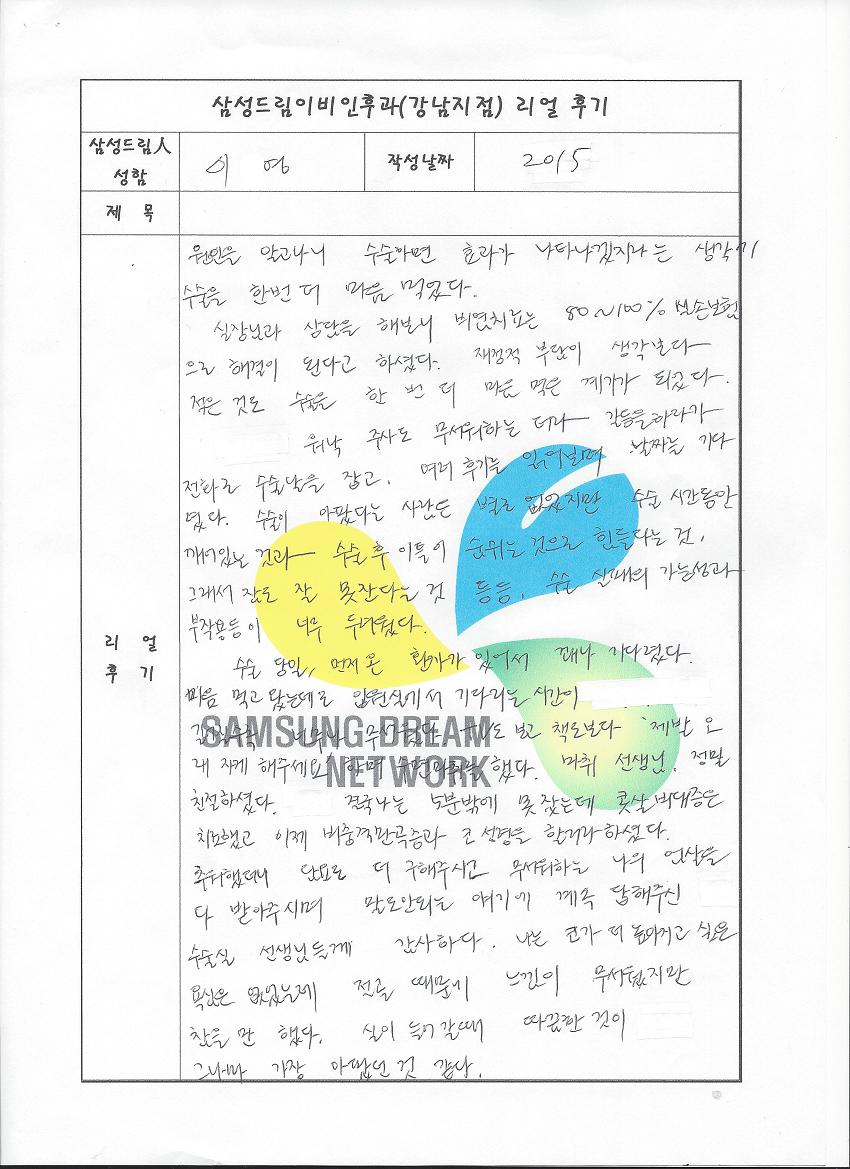 삼성드림이비인후과(강남지점) 리얼 후기
삼성드림人 성함
이 영
작성날짜
2015
제 목
리 얼 후 기
원인을 알고나니 수술하면 효과가 나타나겠지라는 생각이
수술을 한번 더 마음 먹었다.
실장님과 상담을 해보니 비염치료는 80~100% 실손보험
으로 해결이 된다고 하셨다. 재정적 부담이 생각보다
적은 것도 수술을 한 번 더 마음 먹은 계기가 되었다.
워낙 주사도 무서워하는 터라 갈등을하다가
전화로 수술날을 잡고, 여러 후기를 읽어보며 날짜를 기다
렸다. 수술이 아팠다는 사람은 별로 없었지만 수술 시간동안
깨어있는 것과 수술 후 이틀이 숨쉬는 것으로 힘들다는 것,
그래서 잠도 잘 못잔다는 것 등등, 수술 실패의 가능성과
부작용등이 너무 두려웠다.
수술 당일, 먼저 온 환자가 있어서 꽤나 기다렸다.
마음 먹고 왔는데도 입원실에서 기다리는 시간이
보고 책도보다 제발 오
래 자게 해주세요 하며 수면마취를 했다. 마취 선생님, 정말
친절하셨다. 결국나는 5분밖에 못 잤는데 콧살 비대증은
치료했고 이제 비중격만곡증과 코 성형을 할거라 하셨다.
추워했더니 담요도 더 구해주시고 무서워하는 나의 엄살을
다 받아주시며 말도안되는 얘기에 계속 답해주신
수술실 선생님들께 감사하다. 나는 코가 더 높아지고 싶은
욕심은 없었는데 전골 때문에 느낌이 무서웠지만
참을 만 했다. 실이 들어갈때 따끔한 것이
그나마 가장 아팠던 것 같다.
SAMSUNG DREAM
NETWORK